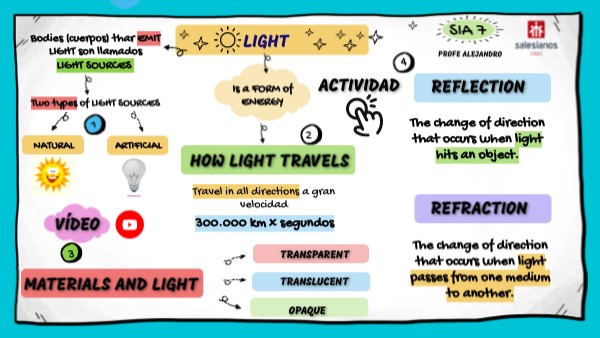 LIGHT
Bodies (cuerpos) thar EMIT
LIGHT son llamados
LIGHT SOURCES
Two types of LIGHT SOURCES
1
NATURAL
ARTIFICIAL
VÍDEO
is a FORM of
ENERGY
2
HOW LIGHT TRAVELS
Travel in all directions a gran
velocidad
300.000 km x segundos
ACTIVIDAD
3
MATERIALS AND LIGHT
TRANSPARENT
TRANSLUCENT
OPAQUE
SIA 7
PROFE ALEJANDRO
salesianos
4
REFLECTION
The change of direction
that occurs when light
hits an object.
REFRACTION
The change of direction
that occurs when light
passes from one medium
to another.